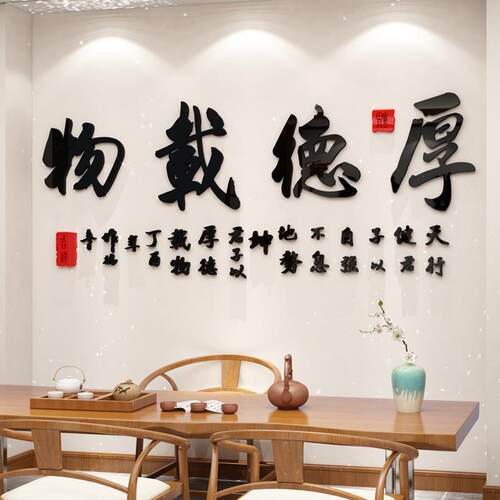 厚德載物
天行健君子以自強不息地勢坤君子以厚德載物丁酉